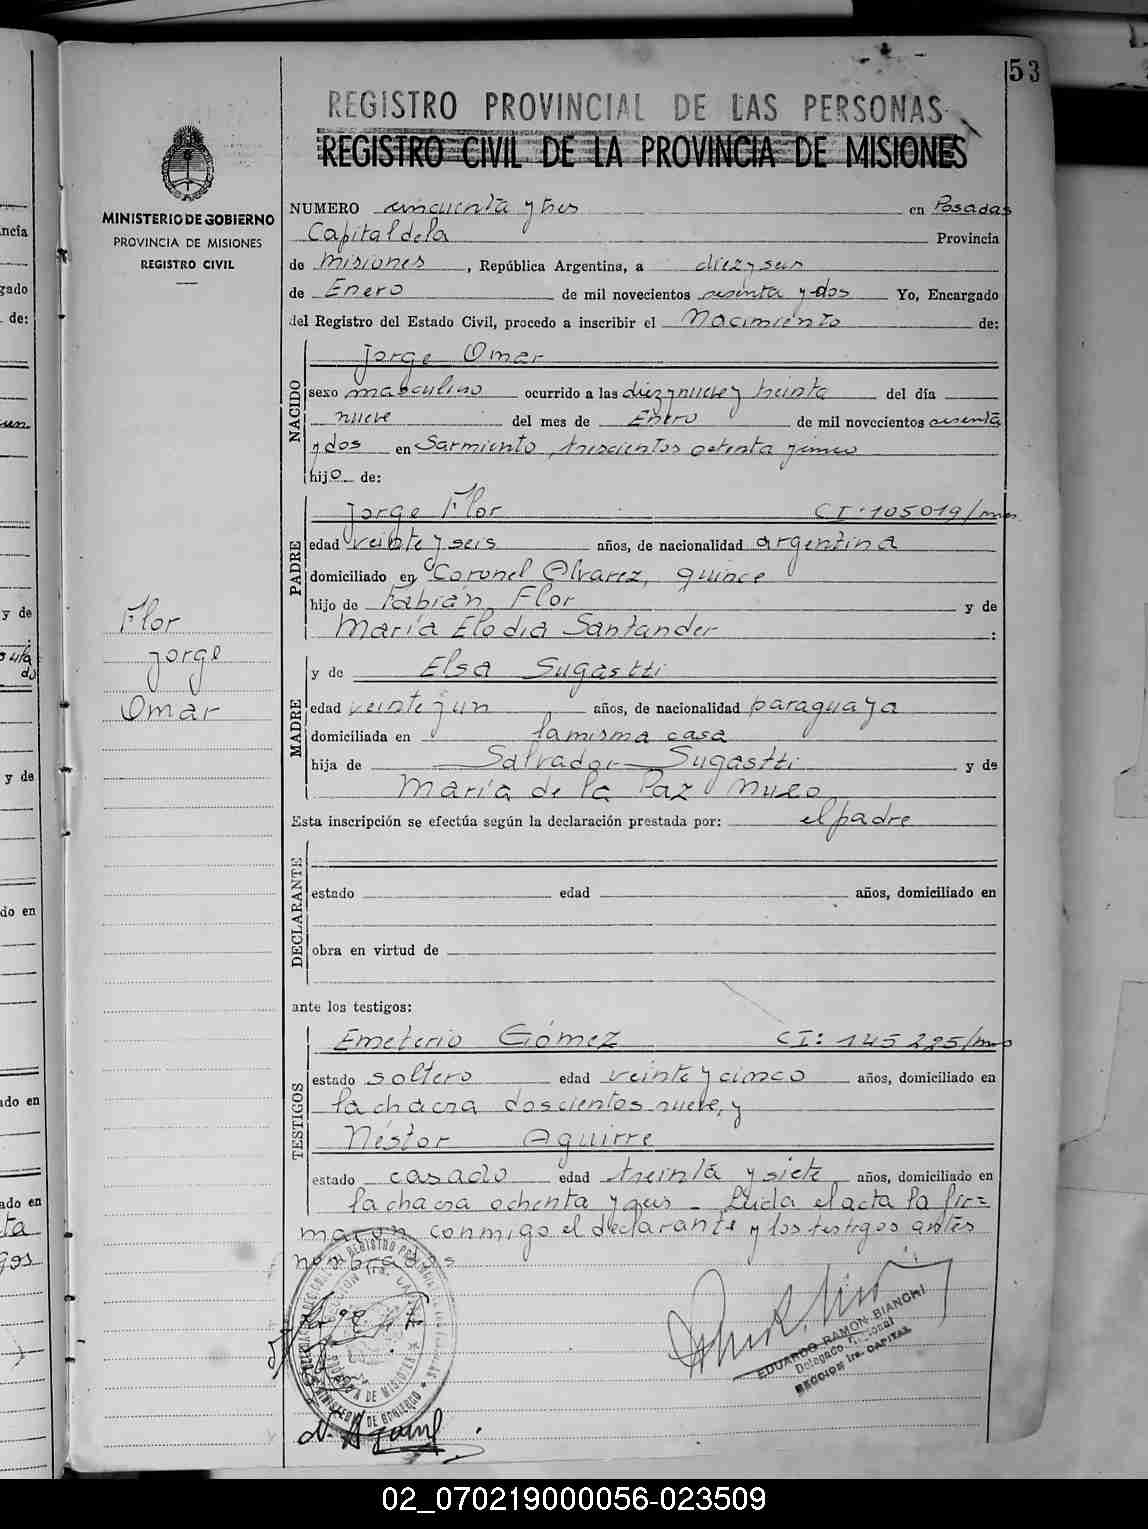 53
REGISTRO PROVINCIAL DE LAS PERSONAS
REGISTRO CIVIL DE LA PROVINCIA DE MISIONES
MINISTERIO DE GOBIERNO
PROVINCIA DE MISIONES
REGISTRO CIVIL
NUMERO cincuenta y tres en Posadas
Capital de la Provincia
de Misiones, República Argentina, a diez y seis
de Enero de mil novecientos sesenta y dos Yo, Encargado
del Registro del Estado Civil, procedo a inscribir el Nacimiento de:
NACIDO
Jorge Omar
sexo masculino ocurrido a las diez y nueve y treinta del día
nueve del mes de Enero de mil novecientos sesenta
y dos en Sarmiento, trescientos setenta y cinco
hijo de:
PADRE
Jorge Flor CI. 105019/mnes
edad veinte y seis años, de nacionalidad argentina
domiciliado en Coronel Alvarez, quince
hijo de Fabián Flor y de
María Elodia Santander :
Flor
Jorge
Omar
MADRE
y de Elsa Sugastti
edad veinte y un años, de nacionalidad paraguaya
domiciliada en la misma casa
hija de Salvador Sugastti y de
María de la Paz
Esta inscripción se efectúa según la declaración prestada por: el padre
DECLARANTE
estado edad años, domiciliado en
obra en virtud de
ante los testigos:
TESTIGOS
Emeterio Gómez CI: 145225/mnes
estado soltero edad veinte y cinco años, domiciliado en
la chacra doscientos nueve, y
Néstor Aguirre
estado casado edad treinta y siete años, domiciliado en
la chacra ochenta y seis - Leída el acta la fir=
maron conmigo el declarante y los testigos antes
nombrados
EDUARDO RAMON BIANCHI
Delegado Regional
SECCION 1ra. CAPITAL
02_070219000056-023509